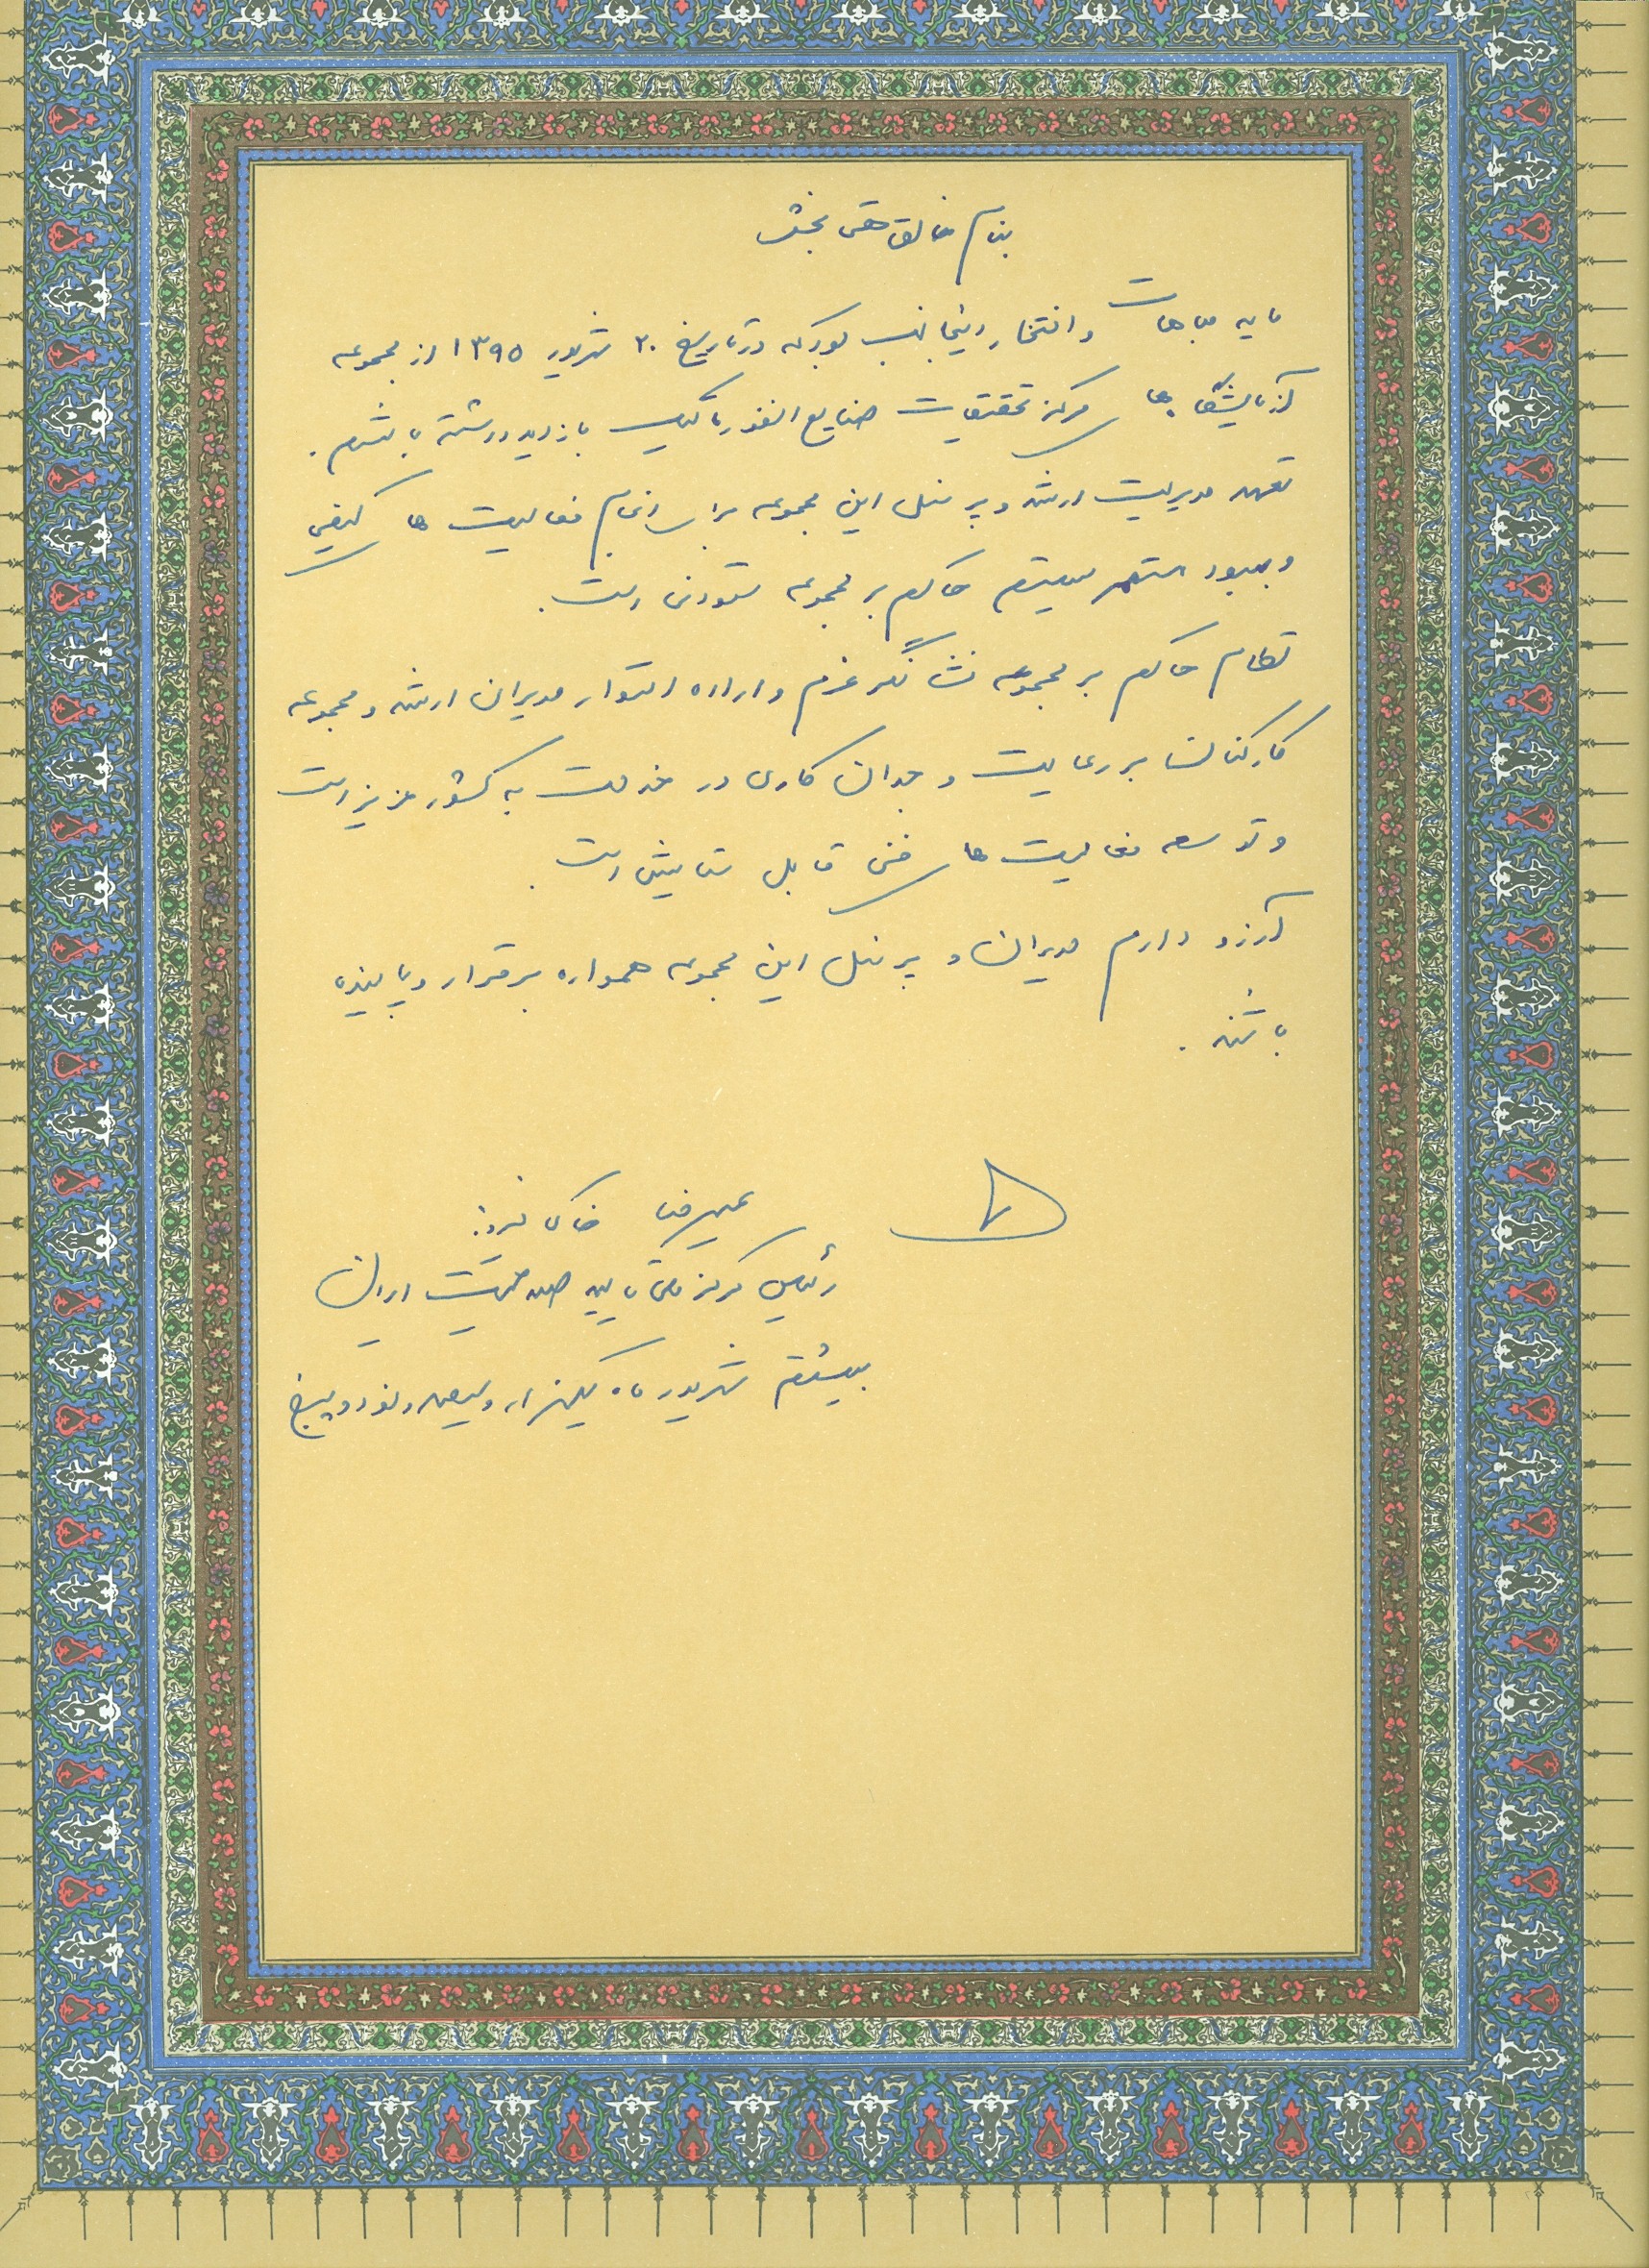 بنام خالق هستی بخش
مایه مباهات و افتخار اینجانب بود که در تاریخ ۲۰ شهریور ۱۳۹۵ از مجموعه
آزمایشگاهها مرکز تحقیقات صنایع انفورماتیک بازدید داشته باشم.
تعهد مدیریت ارشد و پرسنل این مجموعه برای انجام فعالیت های کیفی
و بهبود مستمر سیستم حاکم بر مجموعه ستودنی است.
نظام حاکم بر مجموعه نشانگر عزم و اراده استوار مدیران ارشد و مجموعه
کارکنان بر رعایت وجدان کاری در خدمت به کشور عزیز است
و توسعه فعالیت های فنی قابل ستایش است.
آرزو دارم مدیران و پرسنل این مجموعه همواره برقرار و پاینده
باشند.
علیرضا خاکی
رئیس مرکز ملی تایید صلاحیت ایران
بیستم شهریور ماه یکهزار و سیصد و نود و پنج